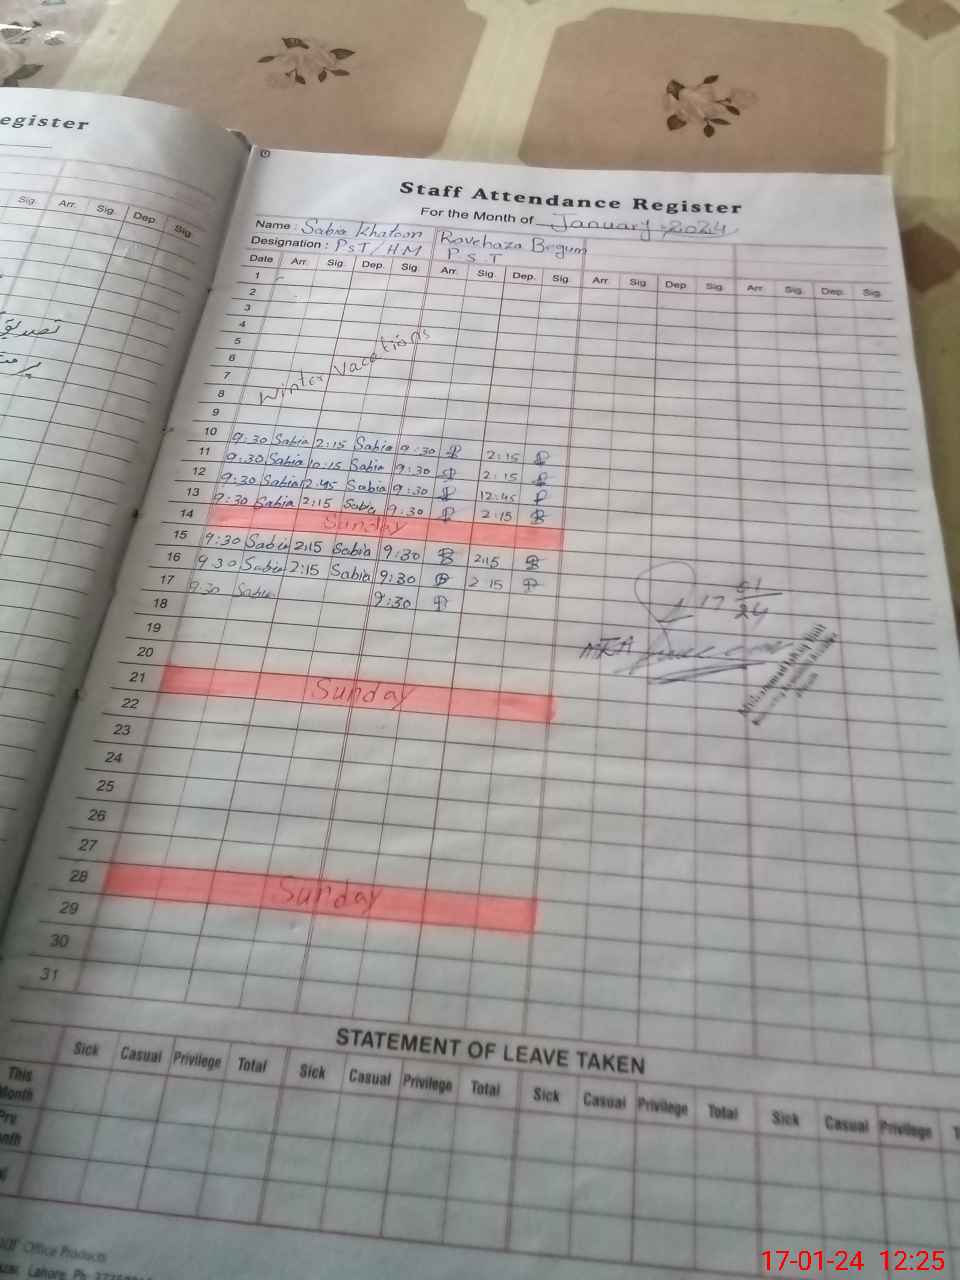 egister
Sig. Arr. Sig. Dep. Sig.
تصدیق
Staff Attendance Register
For the Month of January, 2024
Name : Sabia Khatoon
Begum
Designation : PST/HM P.S.T
Date Arr. Sig. Dep. Sig. Arr. Sig. Dep. Sig. Arr. Sig. Dep. Sig. Arr. Sig. Dep. Sig.
1
2
3
4
5
6
7
8
Winter Vacations
9
10
9:30 Sabia 2:15 Sabia 9:30 2:15
11
9:30 Sabia 10:15 Sabia 9:30 2:15
12
9:30 Sabia 12:45 Sabia 9:30 12:45
13
9:30 Sabia 2:15 Sabia 9:30 2:15
14 Sunday
15
9:30 Sabia 2:15 Sabia 9:30 2:15
16
9:30 Sabia 2:15 Sabia 9:30 2:15
17
9:30 Sabia 9:30
17 01/24
18
19
MEA
20
21 Sunday
22
23
24
25
26
27
28 Sunday
29
30
31
STATEMENT OF LEAVE TAKEN
Sick Casual Privilege Total Sick Casual Privilege Total Sick Casual Privilege Total Sick Casual Privilege T
This
Month
Pre
onth
Office Products
Lahore. Ph:
17-01-24 12:25